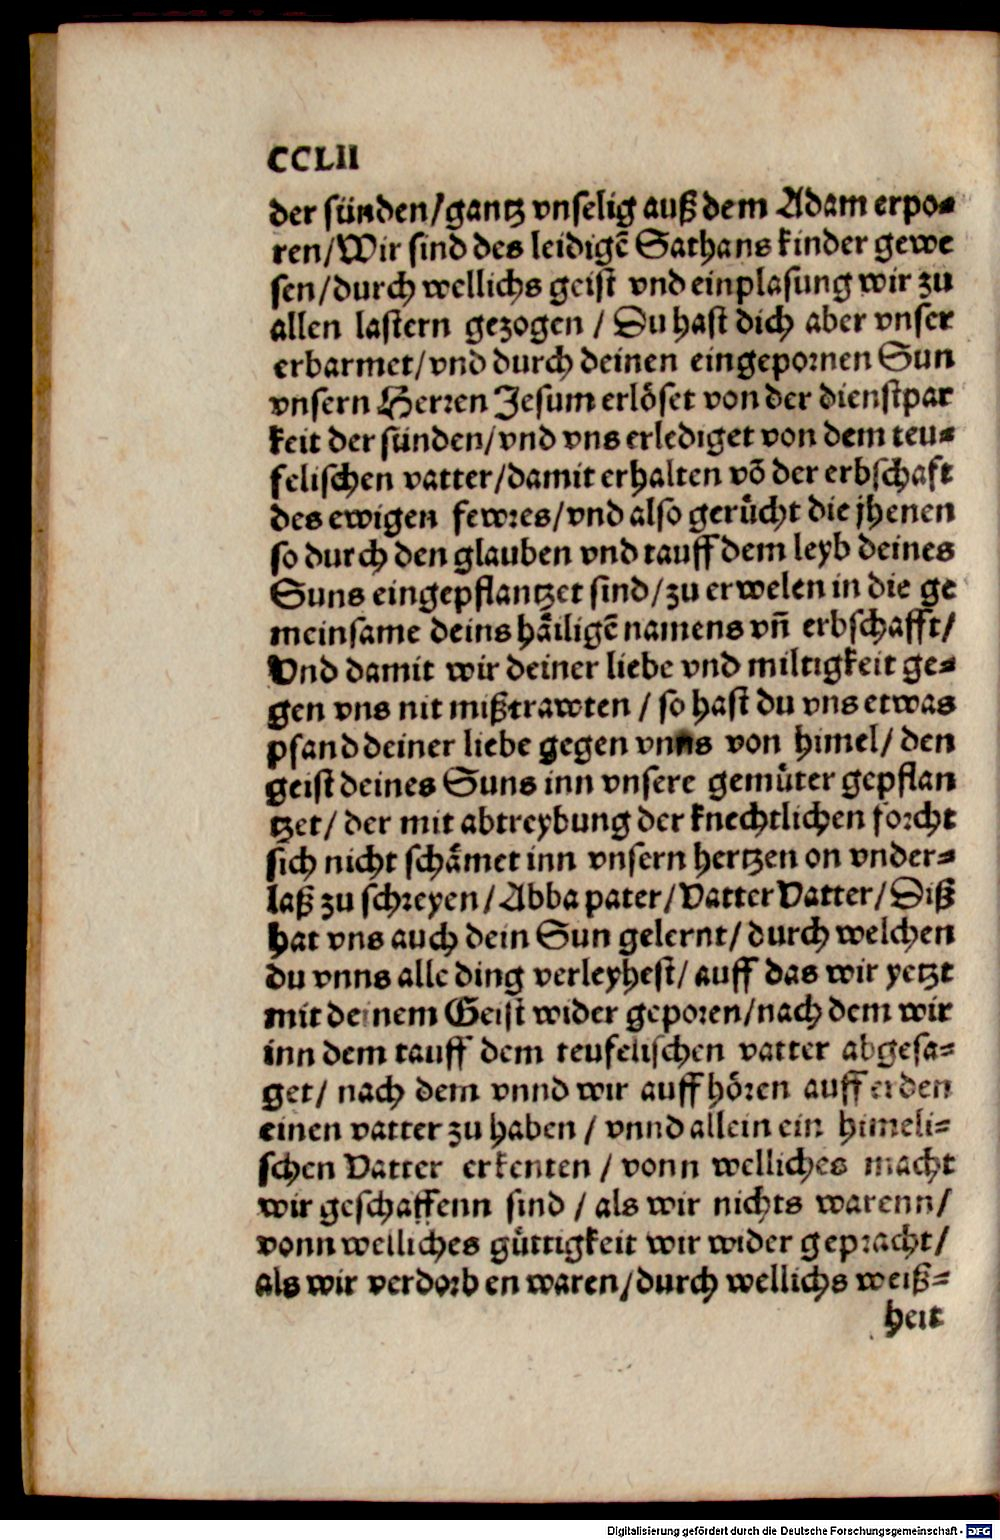 CCLII
der sünden/gantz vnselig auß dem Adam erpo-
ren/Wir sind des leidigẽ Sathans kinder gewe
sen/durch wellichs geist vnd einplasung wir zu
allen lastern gezogen / Du hast dich aber vnser
erbarmet/vnd durch deinen eingepornen Sun
vnsern Herren Jesum erlöset von der dienstpar
keit der sünden/vnd vns erlediget von dem teu-
felischen vatter/damit erhalten võ der erbschaft
des ewigen fewres/vnd also gerůcht die jhenen
so durch den glauben vnd tauff dem leyb deines
Suns eingepflantzet sind/zu erwelen in die ge
meinsame deins häiligẽ namens vñ erbschafft/
Vnd damit wir deiner liebe vnd miltigkeit ge-
gen vns nit mißtrawten / so hast du vns etwas
pfand deiner liebe gegen vnns von himel/ den
geist deines Suns inn vnsere gemůter gepflan
tzet/ der mit abtreybung der knechtlichen forcht
sich nicht schämet inn vnsern hertzen on vnder-
laß zu schreyen/Abba pater/Vatter Vatter/Diß
hat vns auch dein Sun gelernt/durch welchen
du vnns alle ding verleyhest/auff das wir yetzt
mit deinem Geist wider geporen/nach dem wir
inn dem tauff dem teufelischen vatter abgesa-
get/ nach dem vnnd wir auff hören auff erden
einen vatter zu haben / vnnd allein ein himeli-
schen Vatter erkenten / vonn welliches macht
wir geschaffenn sind / als wir nichts warenn/
vonn welliches gůttigkeit wir wider gepracht/
als wir verdorben waren/durch wellichs weiß-
heit
Digitalisierung gefördert durch die Deutsche Forschungsgemeinschaft - DFG